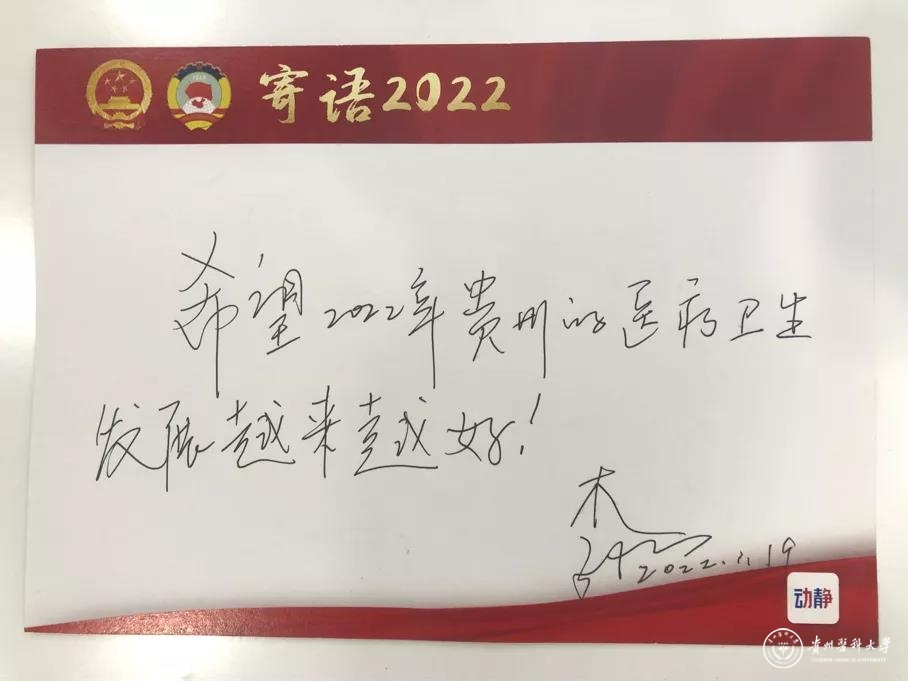 寄语2022
希望2022年贵州的医疗卫生
发展越来越好！
2022.1.19
动静
贵州医科大学
GUIZHOU MEDICAL UNIVERSITY